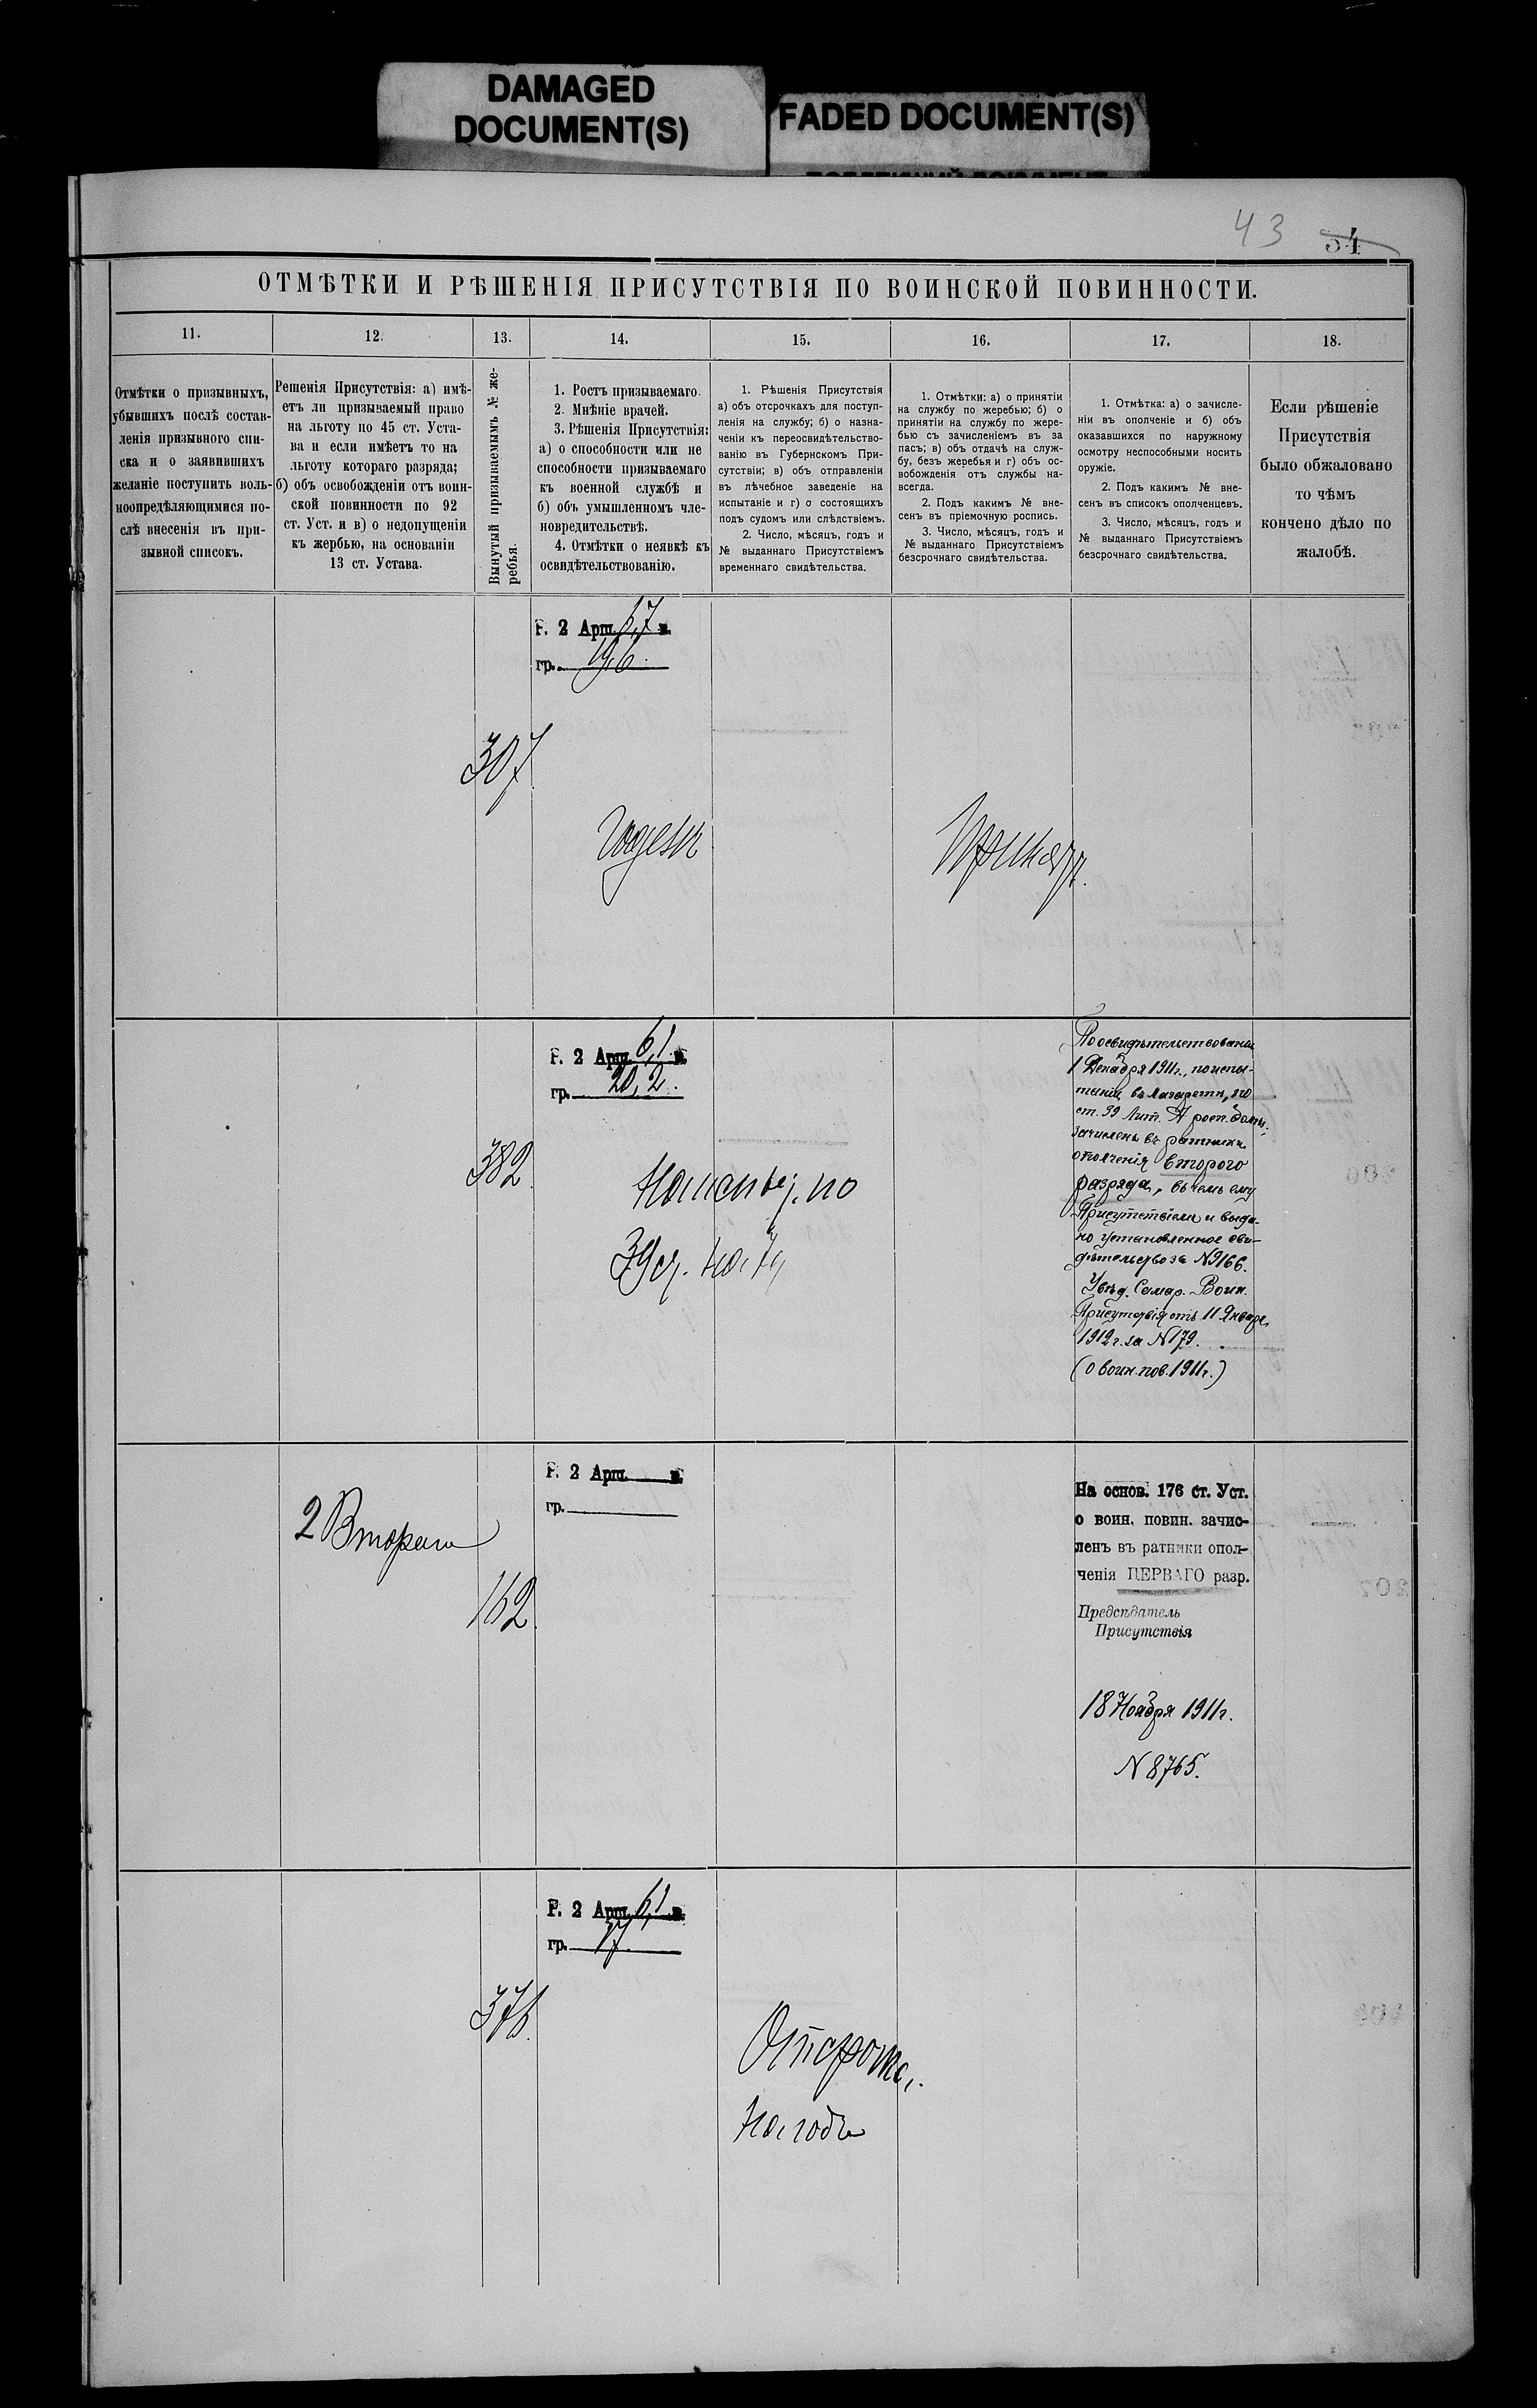 DAMAGED
DOCUMENT(S)
FADED DOCUMENT(S)
43 54
ОТМѢТКИ И РѢШЕНІЯ ПРИСУТСТВІЯ ПО ВОИНСКОЙ ПОВИННОСТИ.
11.
12.
13.
14.
15.
16.
17.
18.
Отмѣтки о призывныхъ,
убывшихъ послѣ состав-
ленія призывного спи-
ска и о заявившихъ
желаніе поступить воль-
ноопредѣляющимися по-
слѣ внесенія въ при-
зывной списокъ.
Решенія Присутствія: а) имѣ-
етъ ли призываемый право
на льготу по 45 ст. Уста-
ва и если имѣетъ то на
льготу котораго разряда;
б) объ освобожденіи отъ воин-
ской повинности по 92
ст. Уст. и в) о недопущеніи
къ жербью, на основаніи
13 ст. Устава.
Вынутый призываемымъ № же-
ребья.
1. Ростъ призываемаго.
2. Мнѣніе врачей.
3. Рѣшенія Присутствія:
а) о способности или не
способности призываемаго
къ военной службѣ и
б) объ умышленномъ чле-
новредительствѣ.
4. Отмѣтки о неявкѣ къ
освидѣтельствованію.
1. Рѣшенія Присутствія
а) объ отсрочкахъ для поступ-
ленія на службу; б) о назна-
ченіи къ переосвидѣтельство-
ванію въ Губернскомъ При-
сутствіи; в) объ отправленіи
въ лѣчебное заведеніе на
испытаніе и г) о состоящихъ
подъ судомъ или слѣдствіемъ.
2. Число, мѣсяцъ, годъ и
№ выданнаго Присутствіемъ
временнаго свидѣтельства.
1. Отмѣтки: а) о принятіи
на службу по жеребью; б) о
принятіи на службу по жере-
бью съ зачисленіемъ въ за
пасъ; в) объ отдачѣ на служ-
бу, безъ жеребья и г) объ ос-
вобожденія отъ службы на-
всегда.
2. Подъ какимъ № вне-
сенъ въ пріемочную роспись.
3. Число, мѣсяцъ, годъ и
№ выданнаго Присутствіемъ
безсрочнаго свидѣтельства.
1. Отмѣтка: а) о зачисле-
ніи въ ополченіе и б) объ
оказавшихся по наружному
осмотру неспособными носить
оружіе.
2. Подъ какимъ № вне-
сенъ въ списокъ ополченцевъ.
3. Число, мѣсяцъ, годъ и
№ выданнаго Присутствіемъ
безсрочнаго свидѣтельства.
Если рѣшеніе
Присутствія
было обжаловано
то чѣмъ
кончено дѣло по
жалобѣ.
Р. 2 Арш. 6,7 в.
гр. 19,6.
307
Годенъ
Принятъ.
Р. 2 Арш. 6,1 в.
гр. 20,2.
382
На испыт. по
39 ст.
По освидѣтельствованіи
1 Декабря 1911г., по испы-
таніи въ лазаретѣ, по
ст. 39 Лит. А
зачисленъ въ ратники
ополченія второго
разряда, въ чемъ ему
Присутствіемъ и выда-
но установленное сви-
дѣтельство за №9166.
Увѣд. Самар. Воин.
Присутствія отъ 11 Января
1912г. за №179.
(о воин. пов. 1911г.)
2 Втораго
162.
Р. 2 Арш. в.
гр.
На основ. 176 ст. Уст.
о воин. повин. зачис-
ленъ въ ратники опол-
ченія ПЕРВАГО разр.
Предсѣдатель
Присутствія
18 Ноября 1911г.
№ 8765.
Р. 2 Арш. 6,1 в.
гр. 17.
376.
Отсрочка
на годъ